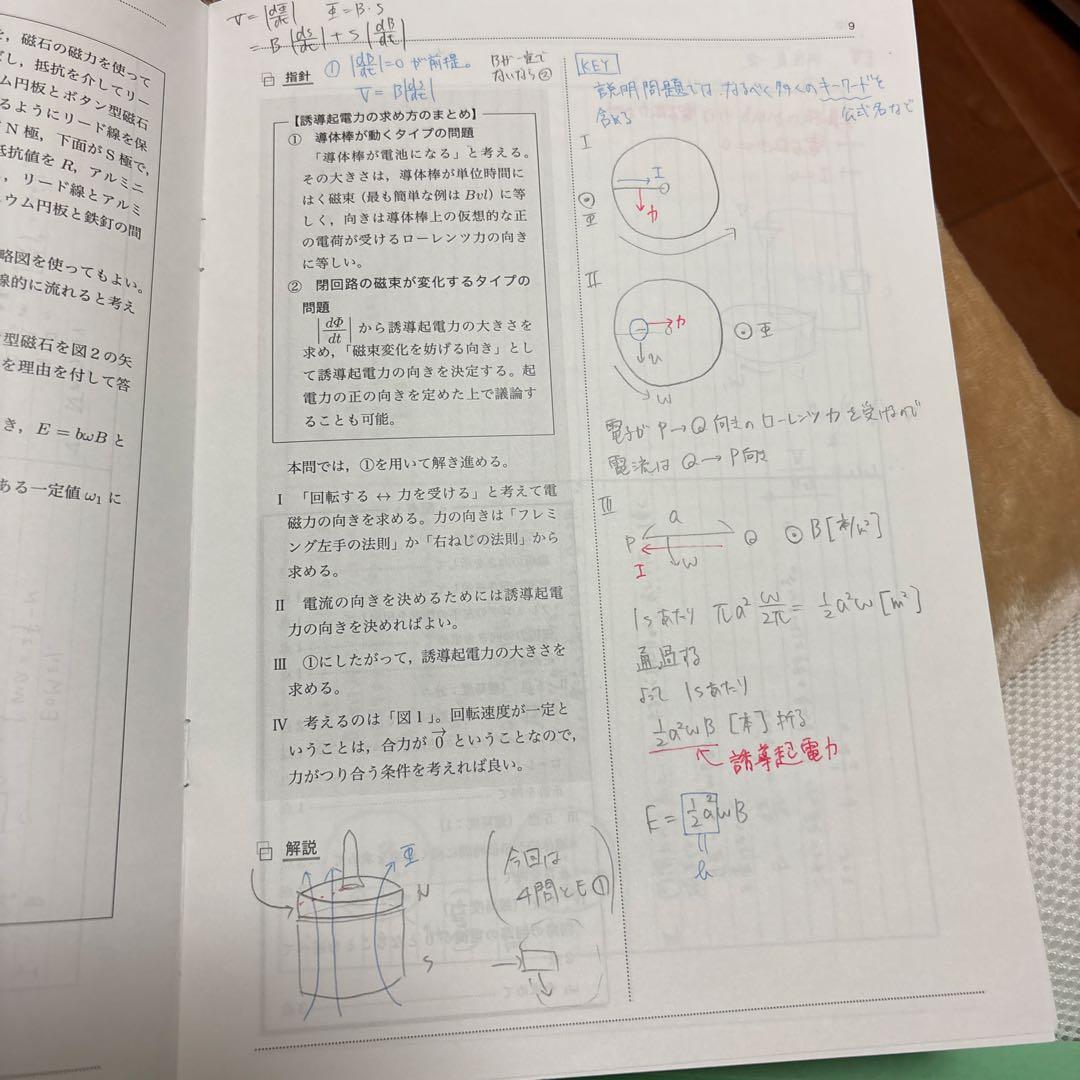 、磁石の磁力を使って
ごし、抵抗を介してリー
ム円板とボタン型磁石
るようにリード線を保
N 極, 下面が S 極で,
抵抗値を R, アルミニ
, リード線とアルミ
ウム円板と鉄釘の間
略図を使ってもよい。
線的に流れると考え
型磁石を図2の矢
を理由を付して答
き, E = bωB と
ある一定値 ω₁ に
9
V = |dΦ/dt| Φ = B・S
= B |dS/dt| + S |dB/dt|
① |dB/dt| = 0 が前提。
Bが一定で
ないなら②
V = B|dS/dt|
指針
【誘導起電力の求め方のまとめ】
① 導体棒が動くタイプの問題
「導体棒が電池になる」と考える。
その大きさは, 導体棒が単位時間に
はく磁束 (最も簡単な例は Bvl) に等
しく, 向きは導体棒上の仮想的な正
の電荷が受けるローレンツ力の向き
に等しい。
② 閉回路の磁束が変化するタイプの
問題
|dΦ/dt| から誘導起電力の大きさを
求め,「磁束変化を妨げる向き」とし
て誘導起電力の向きを決定する。起
電力の正の向きを定めた上で議論す
ることも可能。
本問では, ①を用いて解き進める。
I 「回転する ↔ 力を受ける」と考えて電
磁力の向きを求める。力の向きは「フレミ
ング左手の法則」か「右ねじの法則」から
求める。
II 電流の向きを決めるためには誘導起電
力の向きを決めればよい。
III ①にしたがって, 誘導起電力の大きさを
求める。
IV 考えるのは「図1」。回転速度が一定と
いうことは, 合力が 0→ ということなので,
力がつり合う条件を考えれば良い。
解説
Φ
N
S
今回は
4問とも①
KEY
説明問題では なるべく多くのキーワードを
含める 公式名など
I
I
力
Φ
II
力
Φ
u
ω
電子が P→Q 向きのローレンツ力を受けるので
電流は Q→P 向き
III
a
P Q B [本/m²]
I ω
1sあたり πa² ω/2π = 1/2 a²ω [m²]
通過する
よって 1sあたり
1/2 a²ωB [本] 横切る
誘導起電力
E = 1/2 a² ωB
b